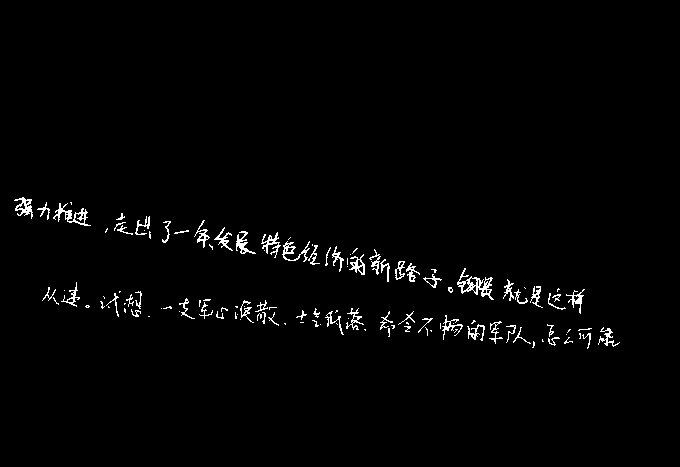 强力推进,走出了一条发展特色经济的新路子。就是这样
从速。试想、一支军心涣散、士气低落、命令不畅的军队,怎么可能